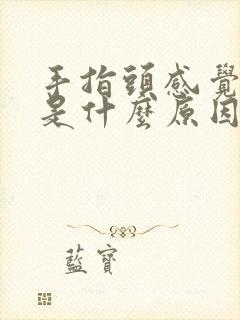 手指頭感覺
是什麼原因
藍寶